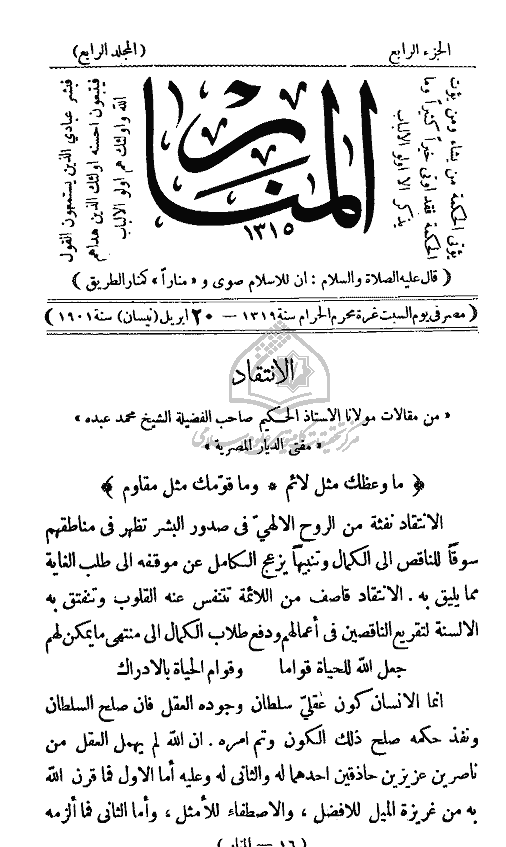 الجزء الرابع
(المجلد الرابع)
يؤتى الحكمة من يشاء ومن يؤت
الحكمة فقد اوتى خيراً كثيراً وما
يذكر الا اولو الالباب
المنار
١٣١٥
فبشر عبادي الذين يستمعون القول
فيتبعون احسنه اولئك الذين هداهم
الله واولئك هم اولو الالباب
( قال عليه الصلاة والسلام : ان للاسلام صوى و « مناراً » كمنار الطريق )
( مصر فى يوم السبت غرة محرم الحرام سنة ١٣١٩ — ٢٠ ابريل (نيسان) سنة ١٩٠١ )
الانتقاد
« من مقالات مولانا الاستاذ الحكيم صاحب الفضيلة الشيخ محمد عبده »
« مفتى الديار المصرية »
﴿ ما وعظك مثل لائم * وما قومك مثل مقاوم ﴾
الانتقاد نفثة من الروح الالهىّ فى صدور البشر تظهر فى مناطقهم
سوقاً للناقص الى الكمال وتنبيهاً يزعج الكامل عن موقفه الى طلب الغاية
مما يليق به . الانتقاد قاصف من اللائمة تتنفس عنه القلوب وتنفتق به
الالسنة لتقريع الناقصين فى أعمالهم ودفع طلاب الكمال الى منتهى ما يمكن لهم
جعل الله للحياة قواما وقوام الحياة بالادراك
انما الانسان كون عقليّ سلطان وجوده العقل فان صلح السلطان
ونفذ حكمه صلح ذلك الكون وتم امره . ان الله لم يهمل العقل من
ناصرين عزيزين حاذقين احدهما له والثانى له وعليه أما الاول فما قرن الله
به من غريزة الميل للافضل ، والاصطفاء للأمثل ، وأما الثانى فما ألزمه
( ١٦ — المنار )